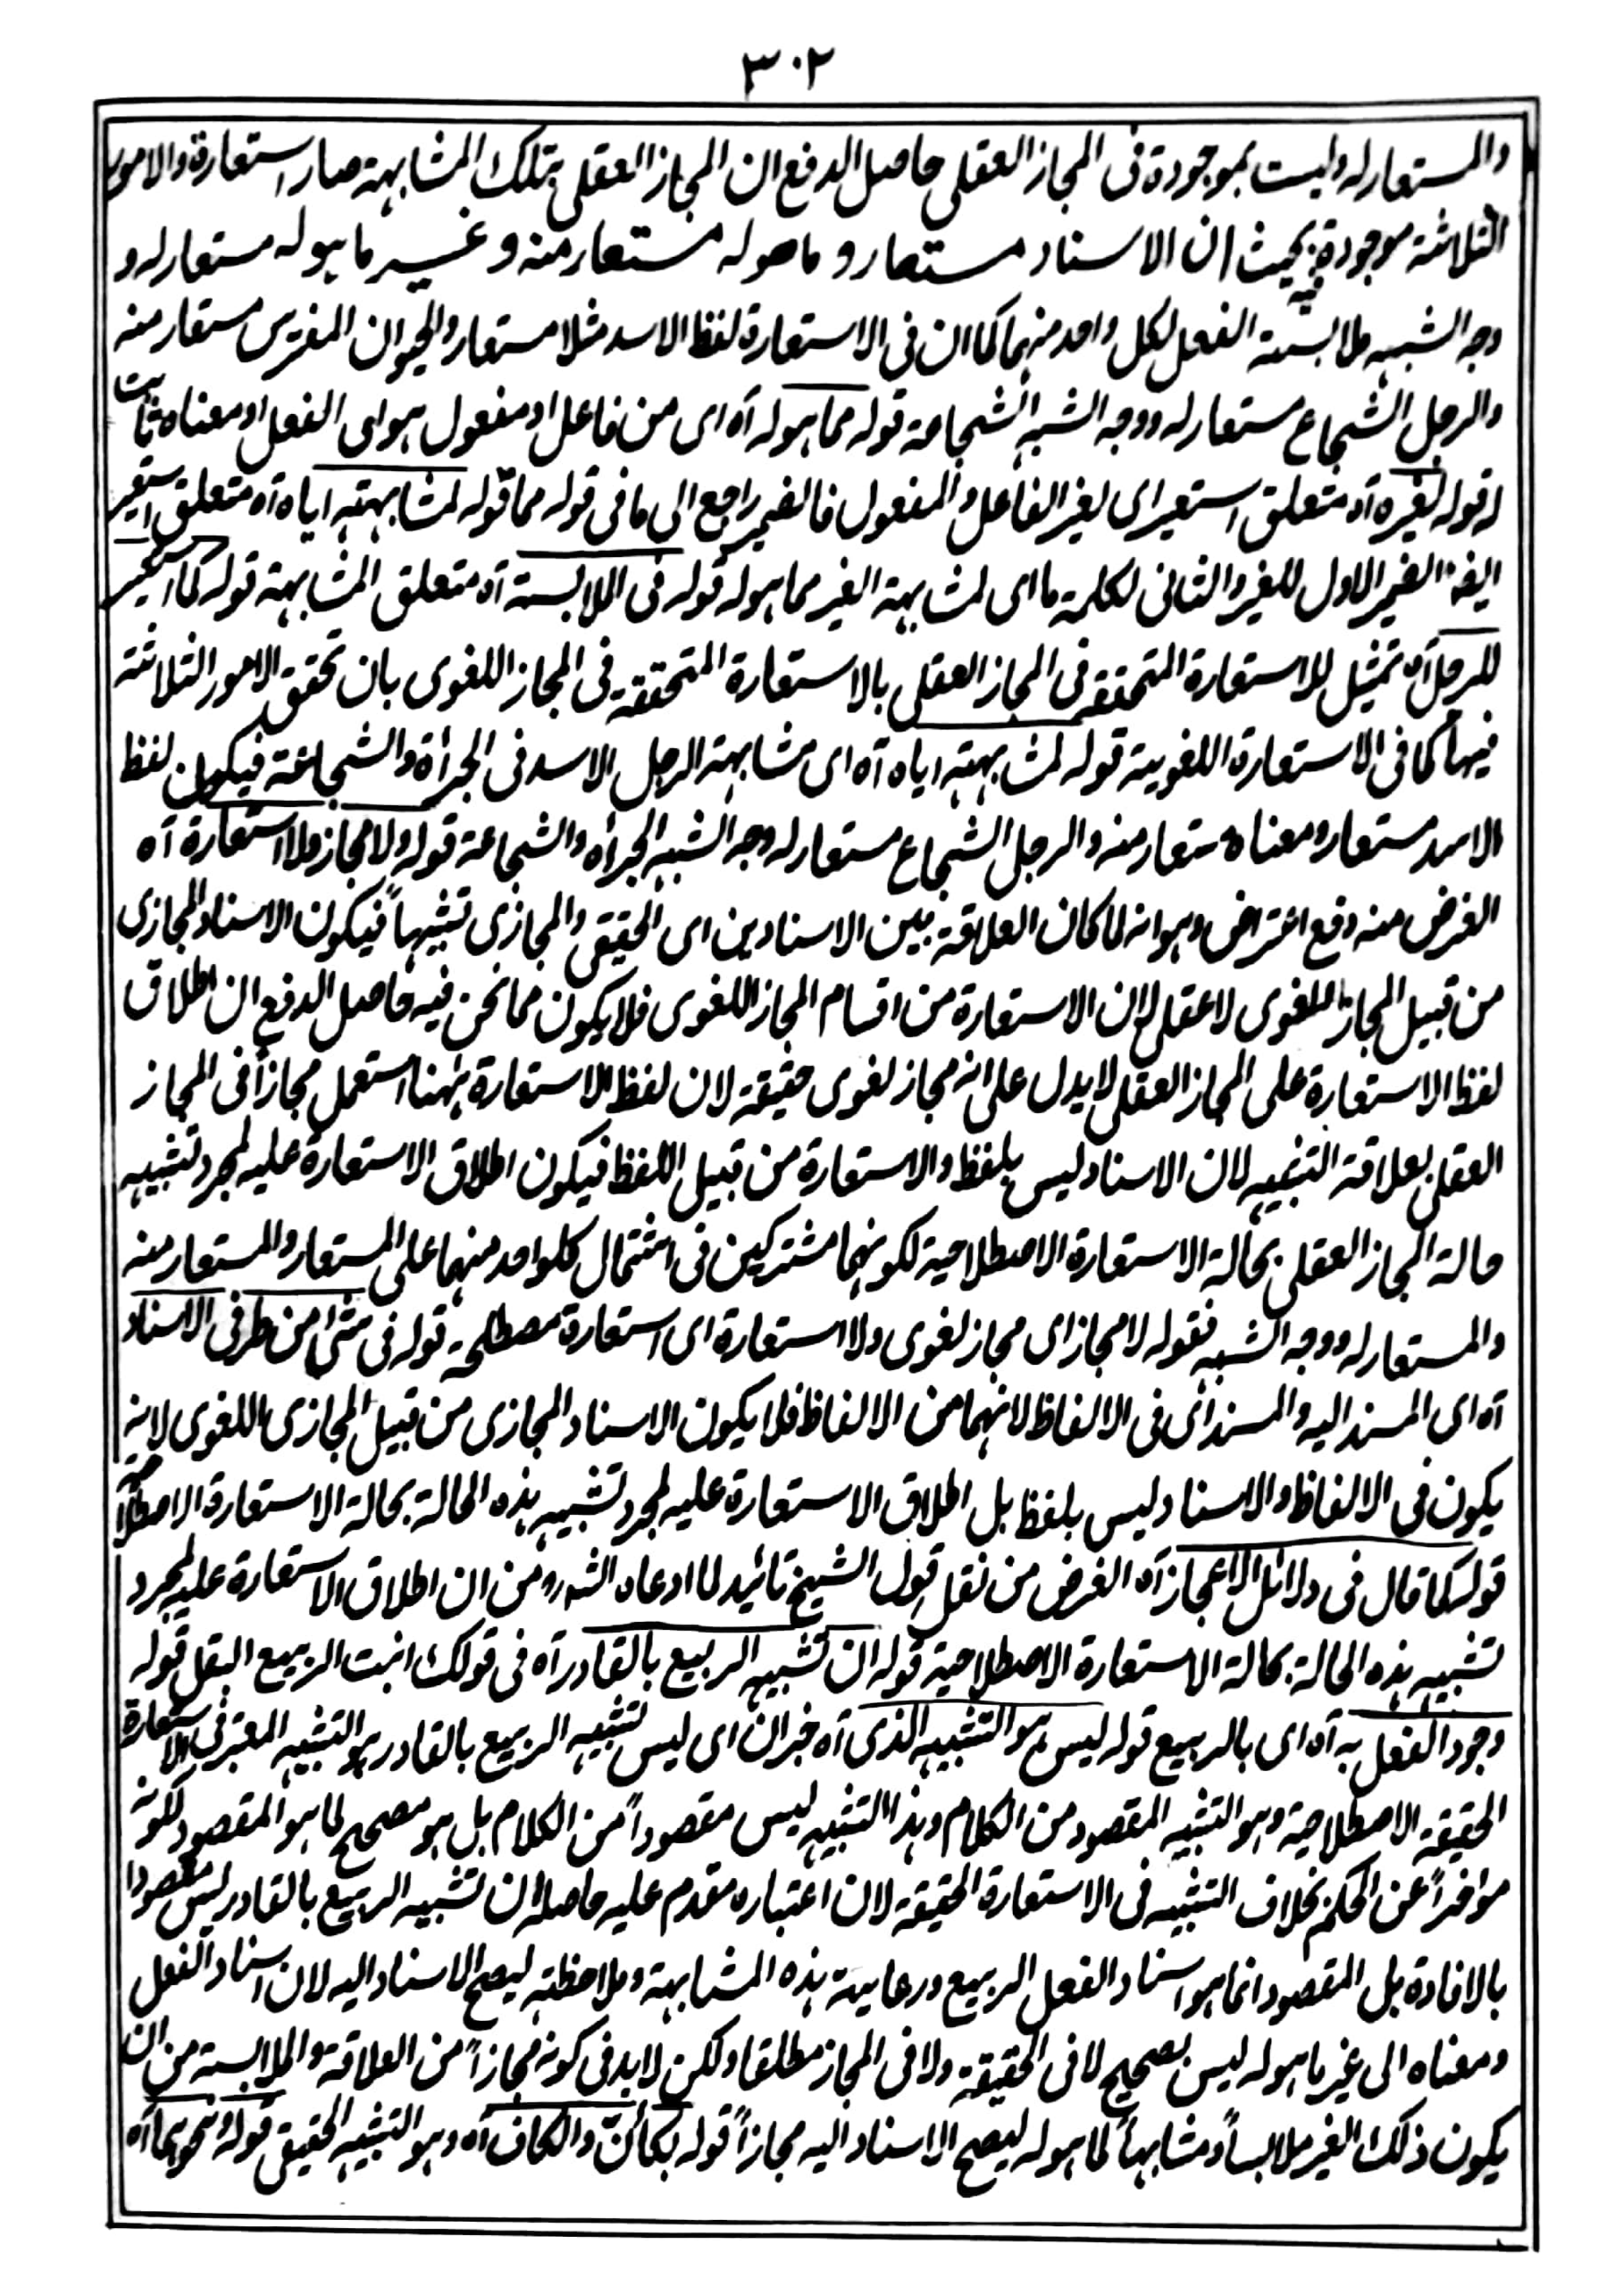 ٣٠٢
والمستعار له وليست بموجودة فى المجاز العقلى حاصل الدفع ان المجاز العقلى بتلك المشابهة صار استعارة والامور
الثلاثة موجودة فيه بحيث ان الاسناد مستعار و ما هو له مستعار منه و غير ما هو له مستعار له و
وجه الشبه ملابسة الفعل لكل واحد منهما كما ان فى الاستعارة لفظ الاسد مثلا مستعار والحيوان المفترس مستعار منه
والرجل الشجاع مستعار له ووجه الشبه الشجاعة قوله مما هو له آه اى من فاعل او مفعول هو اى الفعل او معناه ثابت
له قوله لغيره آه متعلق استعير اى لغير الفاعل والمفعول فالضمير راجع الى ما فى قوله مما قوله لمشابهته اياه آه متعلق استعير
ايضا الضمير الاول للغير والثانى لكلمة ما اى لمشابهة الغير مما هو له قوله فى الملابسة آه متعلق المشابهة قوله كما استعير
للرجل آه تمثيل للاستعارة المتحققة فى المجاز العقلى بالاستعارة المتحققة فى المجاز اللغوى بان تحقق الامور الثلاثة
فيها كما فى الاستعارة اللغوية قوله لمشابهته اياه آه اى مشابهة الرجل الاسد فى الجرأة والشجاعة فيكون لفظ
الاسد مستعار ومعناه مستعار منه والرجل الشجاع مستعار له وجه الشبه الجرأه والشجاعة قوله ولا مجاز ولا استعارة آه
الغرض منه دفع اعتراض وهو انه لما كان العلاقة بين الاسنادين اى الحقيقى والمجازى تشبيهاً فيكون الاسناد المجازى
من قبيل المجاز اللغوى لا عقلى لان الاستعارة من اقسام المجاز اللغوى فلا يكون مما نحن فيه فاصل الدفع ان اطلاق
لفظ الاستعارة على المجاز العقلى لا يدل على انه مجاز لغوى حقيقة لان لفظ الاستعارة ههنا استعمل مجازاً فى المجاز
العقلى بعلاقة التشبيه لان الاسناد ليس بلفظ والاستعارة من قبيل اللفظ فيكون اطلاق الاستعارة عليه لمجرد تشبيه
حالة المجاز العقلى بحالة الاستعارة الاصطلاحية لكونهما مشتركين فى اشتمال كلواحد منهما على المستعار والمستعار منه
والمستعار له ووجه الشبه فقوله لا مجاز اى مجاز لغوى ولا استعارة اى استعارة مصطلحة قوله فى شئ من طرفى الاسناد
آه اى المسند اليه والمسند اى فى الالفاظ لانهما من الالفاظ فلا يكون الاسناد المجازى من قبيل المجازى اللغوى لانه
يكون فى الالفاظ والاسناد ليس بلفظ بل اطلاق الاستعارة عليه لمجرد تشبيه هذه الحالة بحالة الاستعارة الاصطلاحية
قوله كما قال فى دلائل الاعجاز آه الغرض من نقل قول الشيخ تائيد لما ادعاه الشه رو من ان اطلاق الاستعارة عليه لمجرد
تشبيه هذه الحالة بحالة الاستعارة الاصطلاحية قوله ان تشبيه الربيع بالقادر آه فى قولك انبت الربيع البقل قوله
وجود الفعل به آه اى بالربيع قوله ليس هو التشبيه الذى آه خبر ان اى ليس تشبيه الربيع بالقادر هو التشبيه المعتبر فى الاستعارة
الحقيقة الاصطلاحية وهو التشبيه المقصود من الكلام وهذا التشبيه ليس مقصوداً من الكلام بل هو مصحح لما هو المقصود لكونه
مؤخراً عن الحكم بخلاف التشبيه فى الاستعارة الحقيقة لان اعتباره مقدم عليه حاصله ان تشبيه الربيع بالقادر ليس مقصودا
بالافادة بل المقصود انما هو اسناد الفعل الربيع ورعاية هذه المشابهة وملاحظته ليصح الاسناد اليه لان اسناد الفعل
ومعناه الى غير ما هو له ليس بصحيح لا فى الحقيقة ولا فى المجاز مطلقا ولكن لا بد فى كونه مجازاً من العلاقة والملابسة من ان
يكون ذلك الغير ملابساً ومشابهاً لما هو له ليصح الاسناد اليه مجازاً قوله بكأنّ والكاف آه وهو التشبيه الحقيقى قوله ونحوهما آه